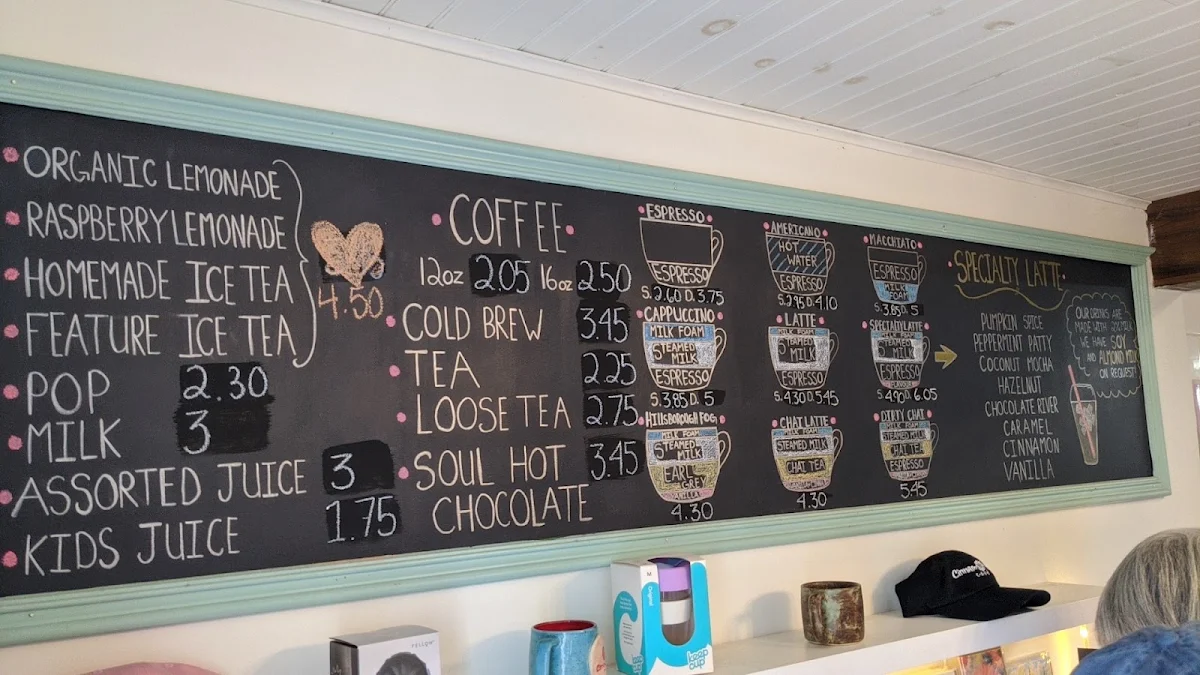 ORGANIC LEMONADE
RASPBERRY LEMONADE
HOMEMADE ICE TEA
FEATURE ICE TEA
4.50
POP 2.30
MILK 3
ASSORTED JUICE 3
KIDS JUICE 1.75
COFFEE
12oz 2.05 16oz 2.50
COLD BREW 3.45
TEA 2.25
LOOSE TEA 2.75
SOUL HOT 3.45
CHOCOLATE
ESPRESSO
ESPRESSO
S. 2.60 D. 3.75
AMERICANO
HOT
WATER
ESPRESSO
S. 2.95 D. 4.10
MACCHIATO
ESPRESSO
MILK
FOAM
S. 3.85 D. 5
CAPPUCCINO
MILK FOAM
STEAMED
MILK
ESPRESSO
S. 3.85 D. 5
LATTE
MILK FOAM
STEAMED
MILK
ESPRESSO
S. 4.30 D. 5.45
SPECIALTY LATTE
MILK FOAM
STEAMED
MILK
ESPRESSO
S. 4.90 D. 6.05
HILLSBOROUGH FOG
MILK FOAM
STEAMED
MILK
EARL
GREY
VANILLA
4.30
CHAI LATTE
MILK FOAM
STEAMED MILK
CHAI TEA
4.30
DIRTY CHAI
MILK FOAM
STEAMED MILK
CHAI TEA
ESPRESSO
5.45
SPECIALTY LATTE
PUMPKIN SPICE
PEPPERMINT PATTY
COCONUT MOCHA
HAZELNUT
CHOCOLATE RIVER
CARAMEL
CINNAMON
VANILLA
OUR DRINKS ARE
MADE WITH 2% MILK
WE HAVE SOY
AND ALMOND MILK
ON REQUEST!
FELLOW
M
Original
keep
cup